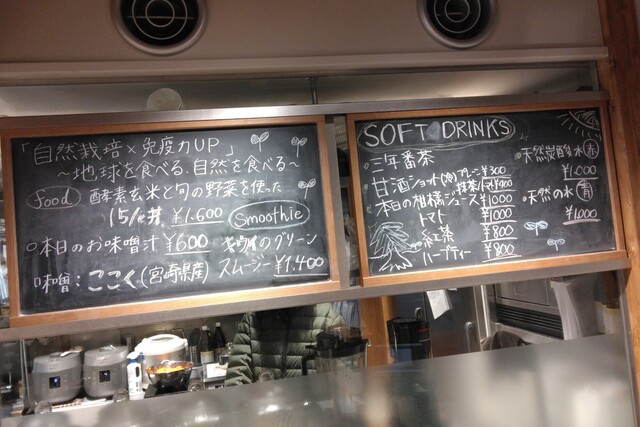 「自然栽培×免疫力UP」
～地球を食べる、自然を食べる～
food 酵素玄米と旬の野菜を使った
丼 ¥1.600
Smoothie
本日のお味噌汁 ¥600
キウイのグリーン
スムージー ¥1.400
味噌：ここく(宮崎県産)
SOFT DRINKS
三年番茶
甘酒ショット(冷) プレーン ¥300
抹茶/トマト ¥400
本日の柑橘ジュース ¥1000
トマト ¥1000
紅茶 ¥800
ハーブティー ¥800
天然炭酸水 赤
¥1.000
天然の水 青
¥1.000